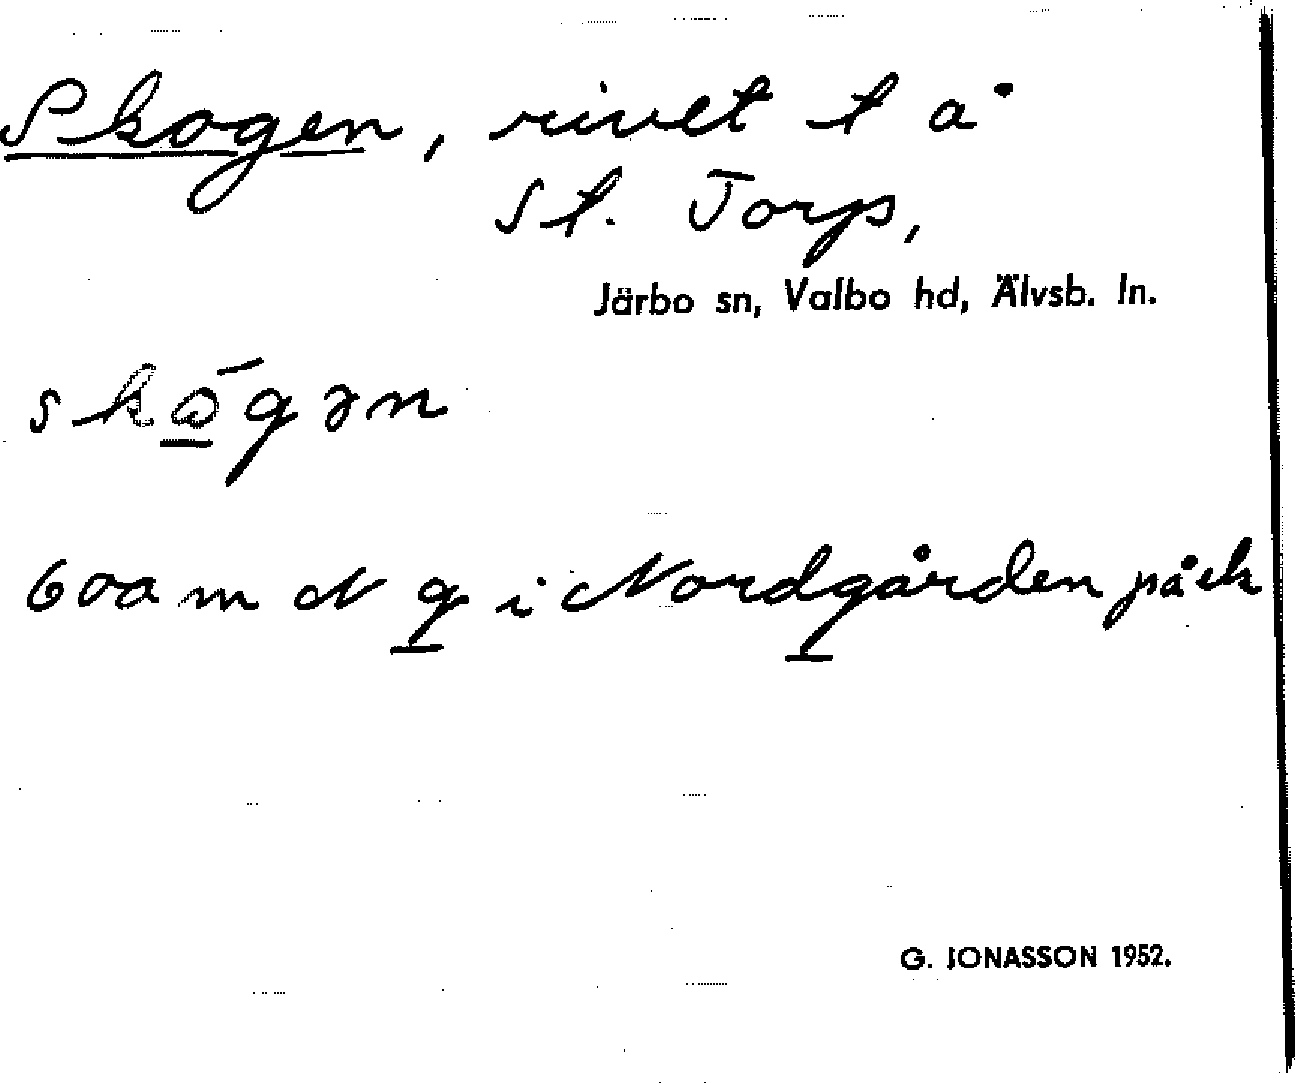 Skogen, rivet t å
St. Torp,
Järbo sn, Valbo hd, Älvsb. ln.
600 m N g i Nordgården på ek
G. JONASSON 1952.